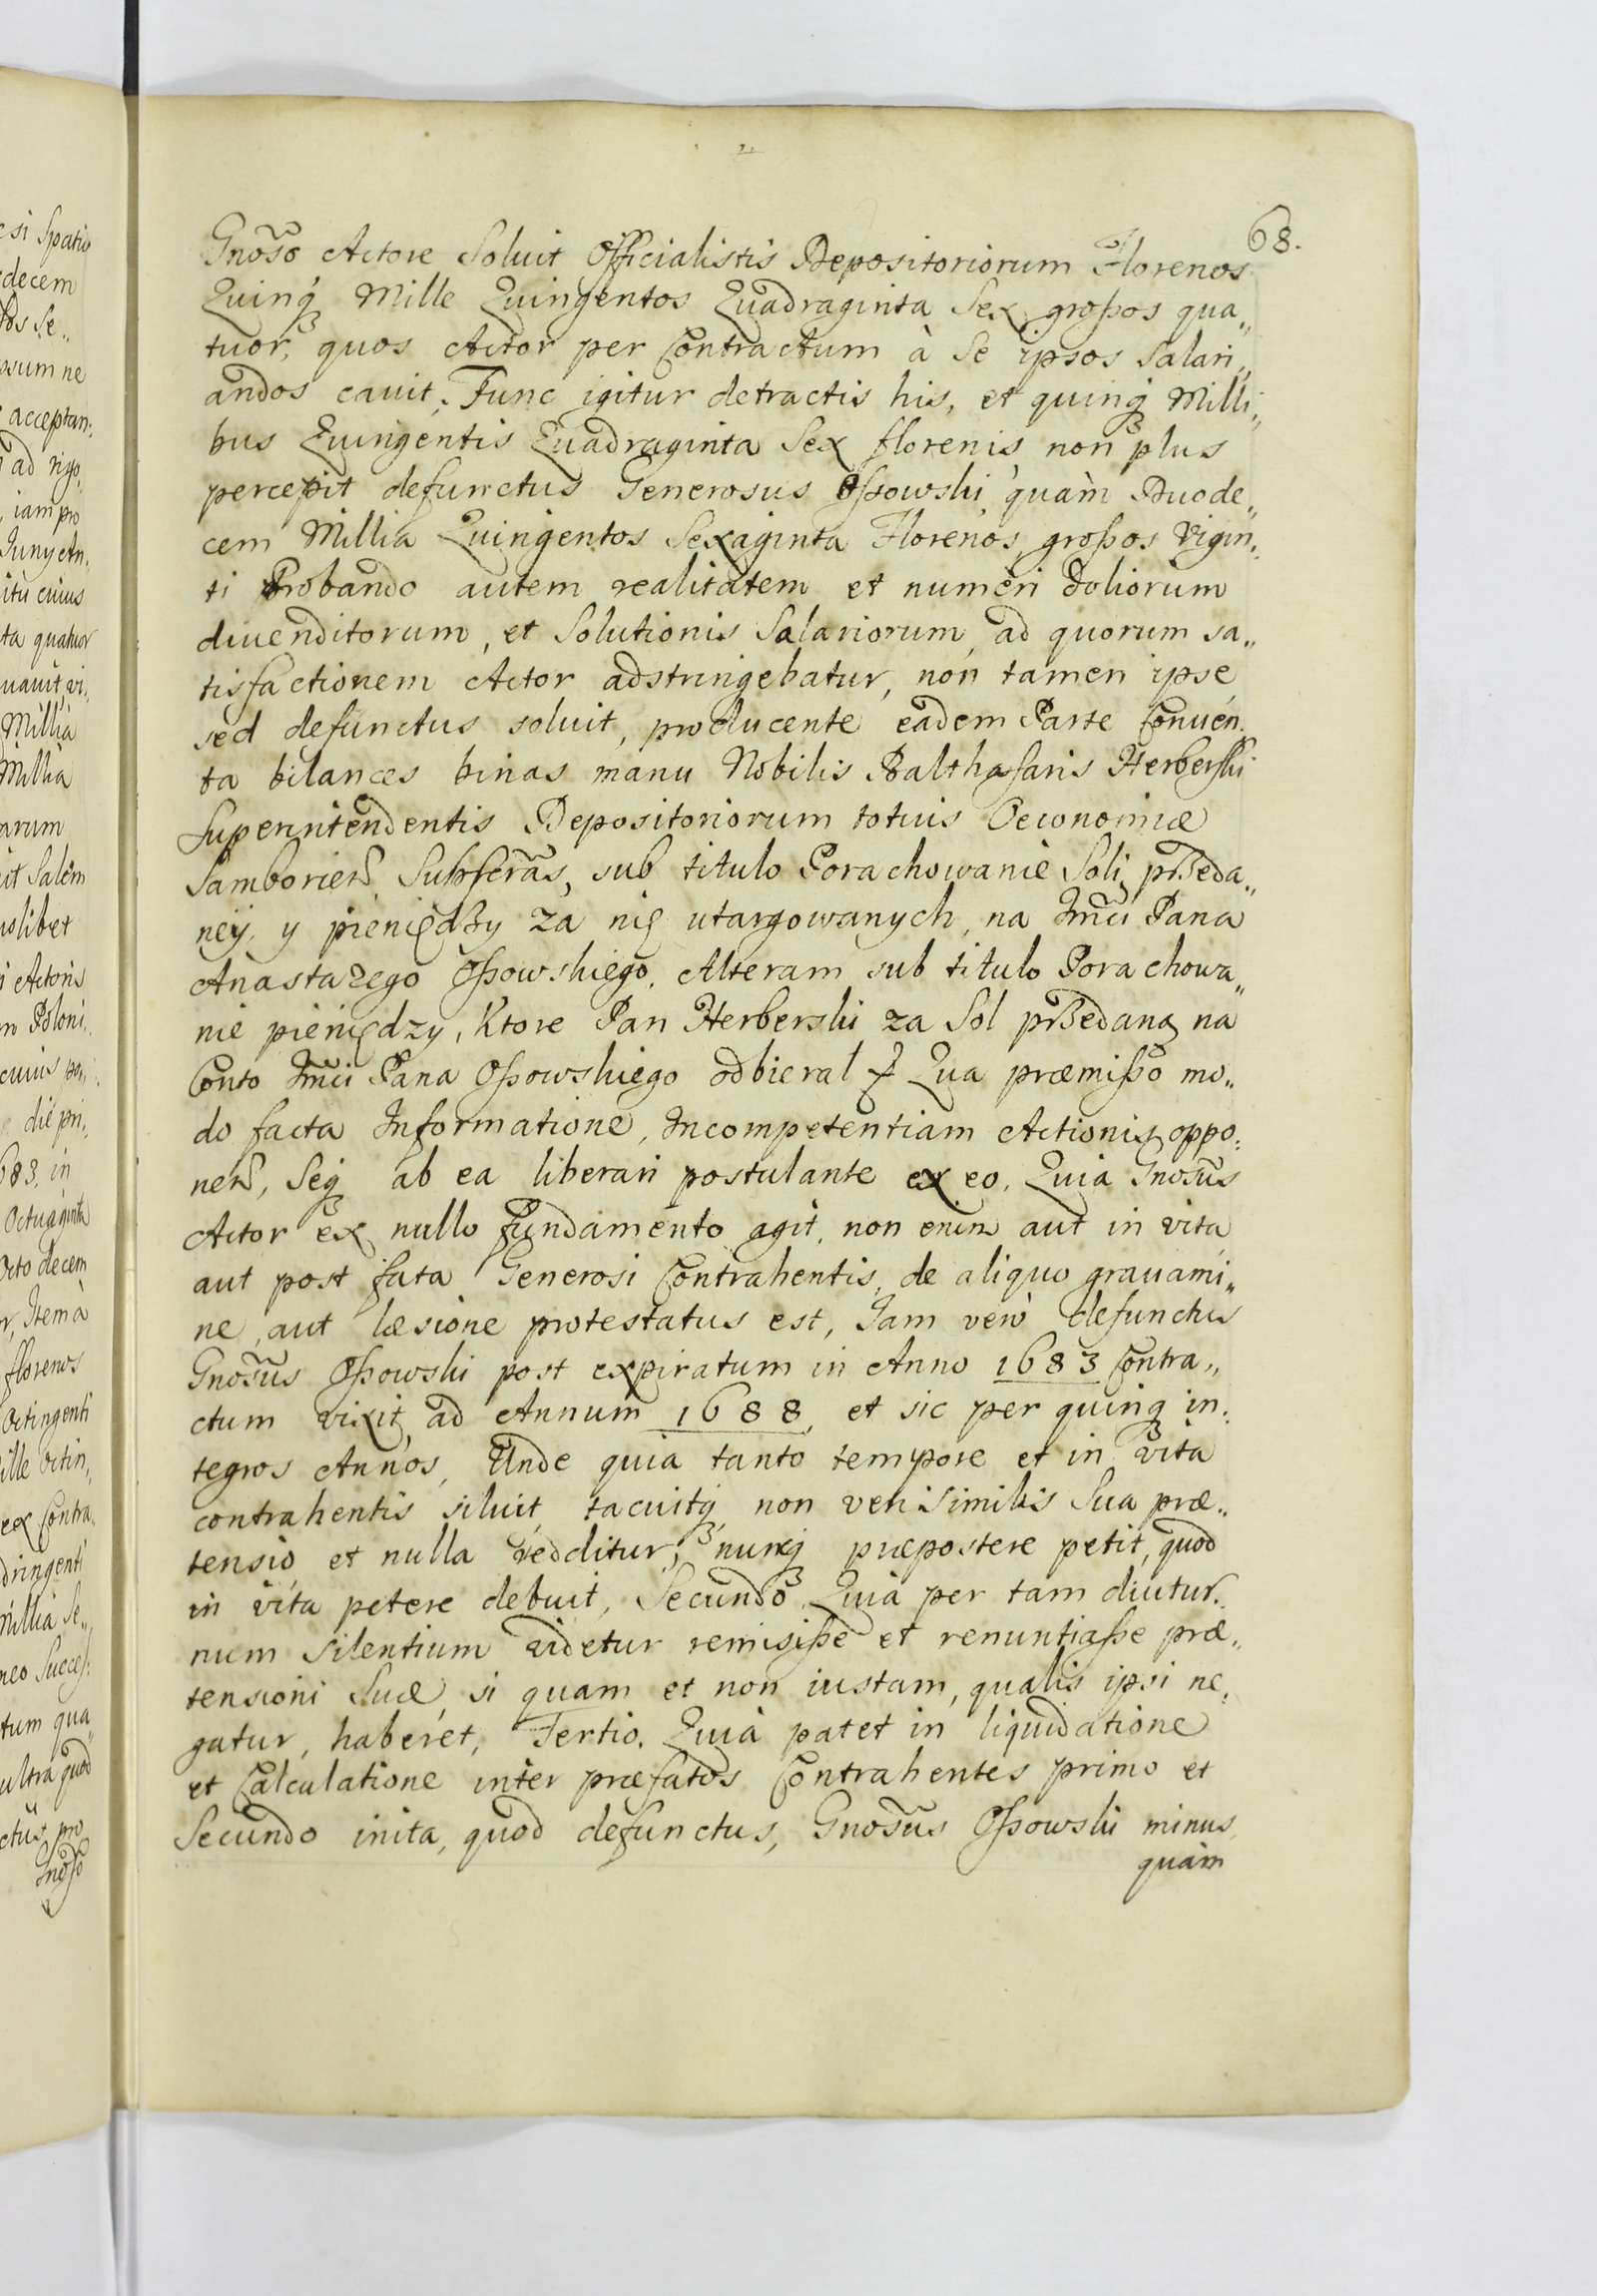 68.
Gnōso Actore Soluit Officialistis Depositoriorum Florenos
Quinq₃ Mille Quingentos Quadraginta Sex, großos qua„
tuor, quos Actor per Contractum à Se ipsos salari„
andos cauit. Tunc igitur detractis his, et quinq₃ Milli„
bus Quingentis Quadraginta Sex florenis non plus
percepit defunctus Generosus Oßowski, quàm Duode„
cem Millia Quingentos Sexaginta Florenos, großos Vigin„
ti Probando autem realitatem et numeri doliorum
diuenditorum, et Solutionis Salariorum, ad quorum sa„
tisfactionem Actor adstringebatur, non tamen ipse
sed defunctus soluit, producente eadem Parte Conuen„
ta bilances binas manu Nobilis Balthasaris Herberski
Superintendentis Depositoriorum totius Oeconomiæ
Samborien̄ Subscrās, sub titulo Porachowanie Soli przeda„
ney, y pieniędzy za nię utargowanych, na Jm̄ci Pana
Anastazego Oßowskiego. Alteram sub titulo Porachowa„
nie pieniędzy, Ktore Pan Herberski za Sol przedaną na
Conto Jm̄ci Pana Oßowskiego odbieral Qua præmißo mo„
do facta Informatione, Incompetentiam Actionis oppo„
nen̄, Seq₃ ab ea liberari postulante ex eo, Quia Gnosūs
Actor ex nullo fundamento agit, non enim aut in vita
aut post fata Generosi Contrahentis, de aliquo grauami„
ne, aut læsione protestatus est, Jam verò defunctus
Gnosūs Oßowski post expiratum in Anno 1683 Contra„
ctum vixit ad Annum 1688, et sic per quinq₃ in„
tegros Annos, Unde quia tanto tempore et in vita
contrahentis siluit, tacuitq₃, non verisimilis Sua præ„
tensio, et nulla redditur, nunq₃ præpostere petit, quod
in vita petere debuit, Secundo Quia per tam diutur„
num silentium videtur remisiße et renuntiaße præ„
tensioni Suæ si quam et non iustam, qualis ipsi ne„
gatur, haberet, Tertio. Quia patet in liquidatione
et Calculatione inter præfatos Contrahentes primo et
Secundo inita, quod defunctus, Gnosūs Oßowski minus
quàm